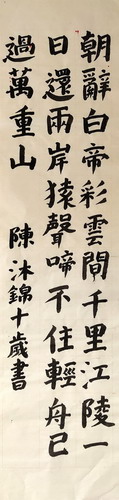 朝辭白帝彩雲間千里江陵一
日還兩岸猿聲啼不住輕舟已
過萬重山 陳沐錦十歲書